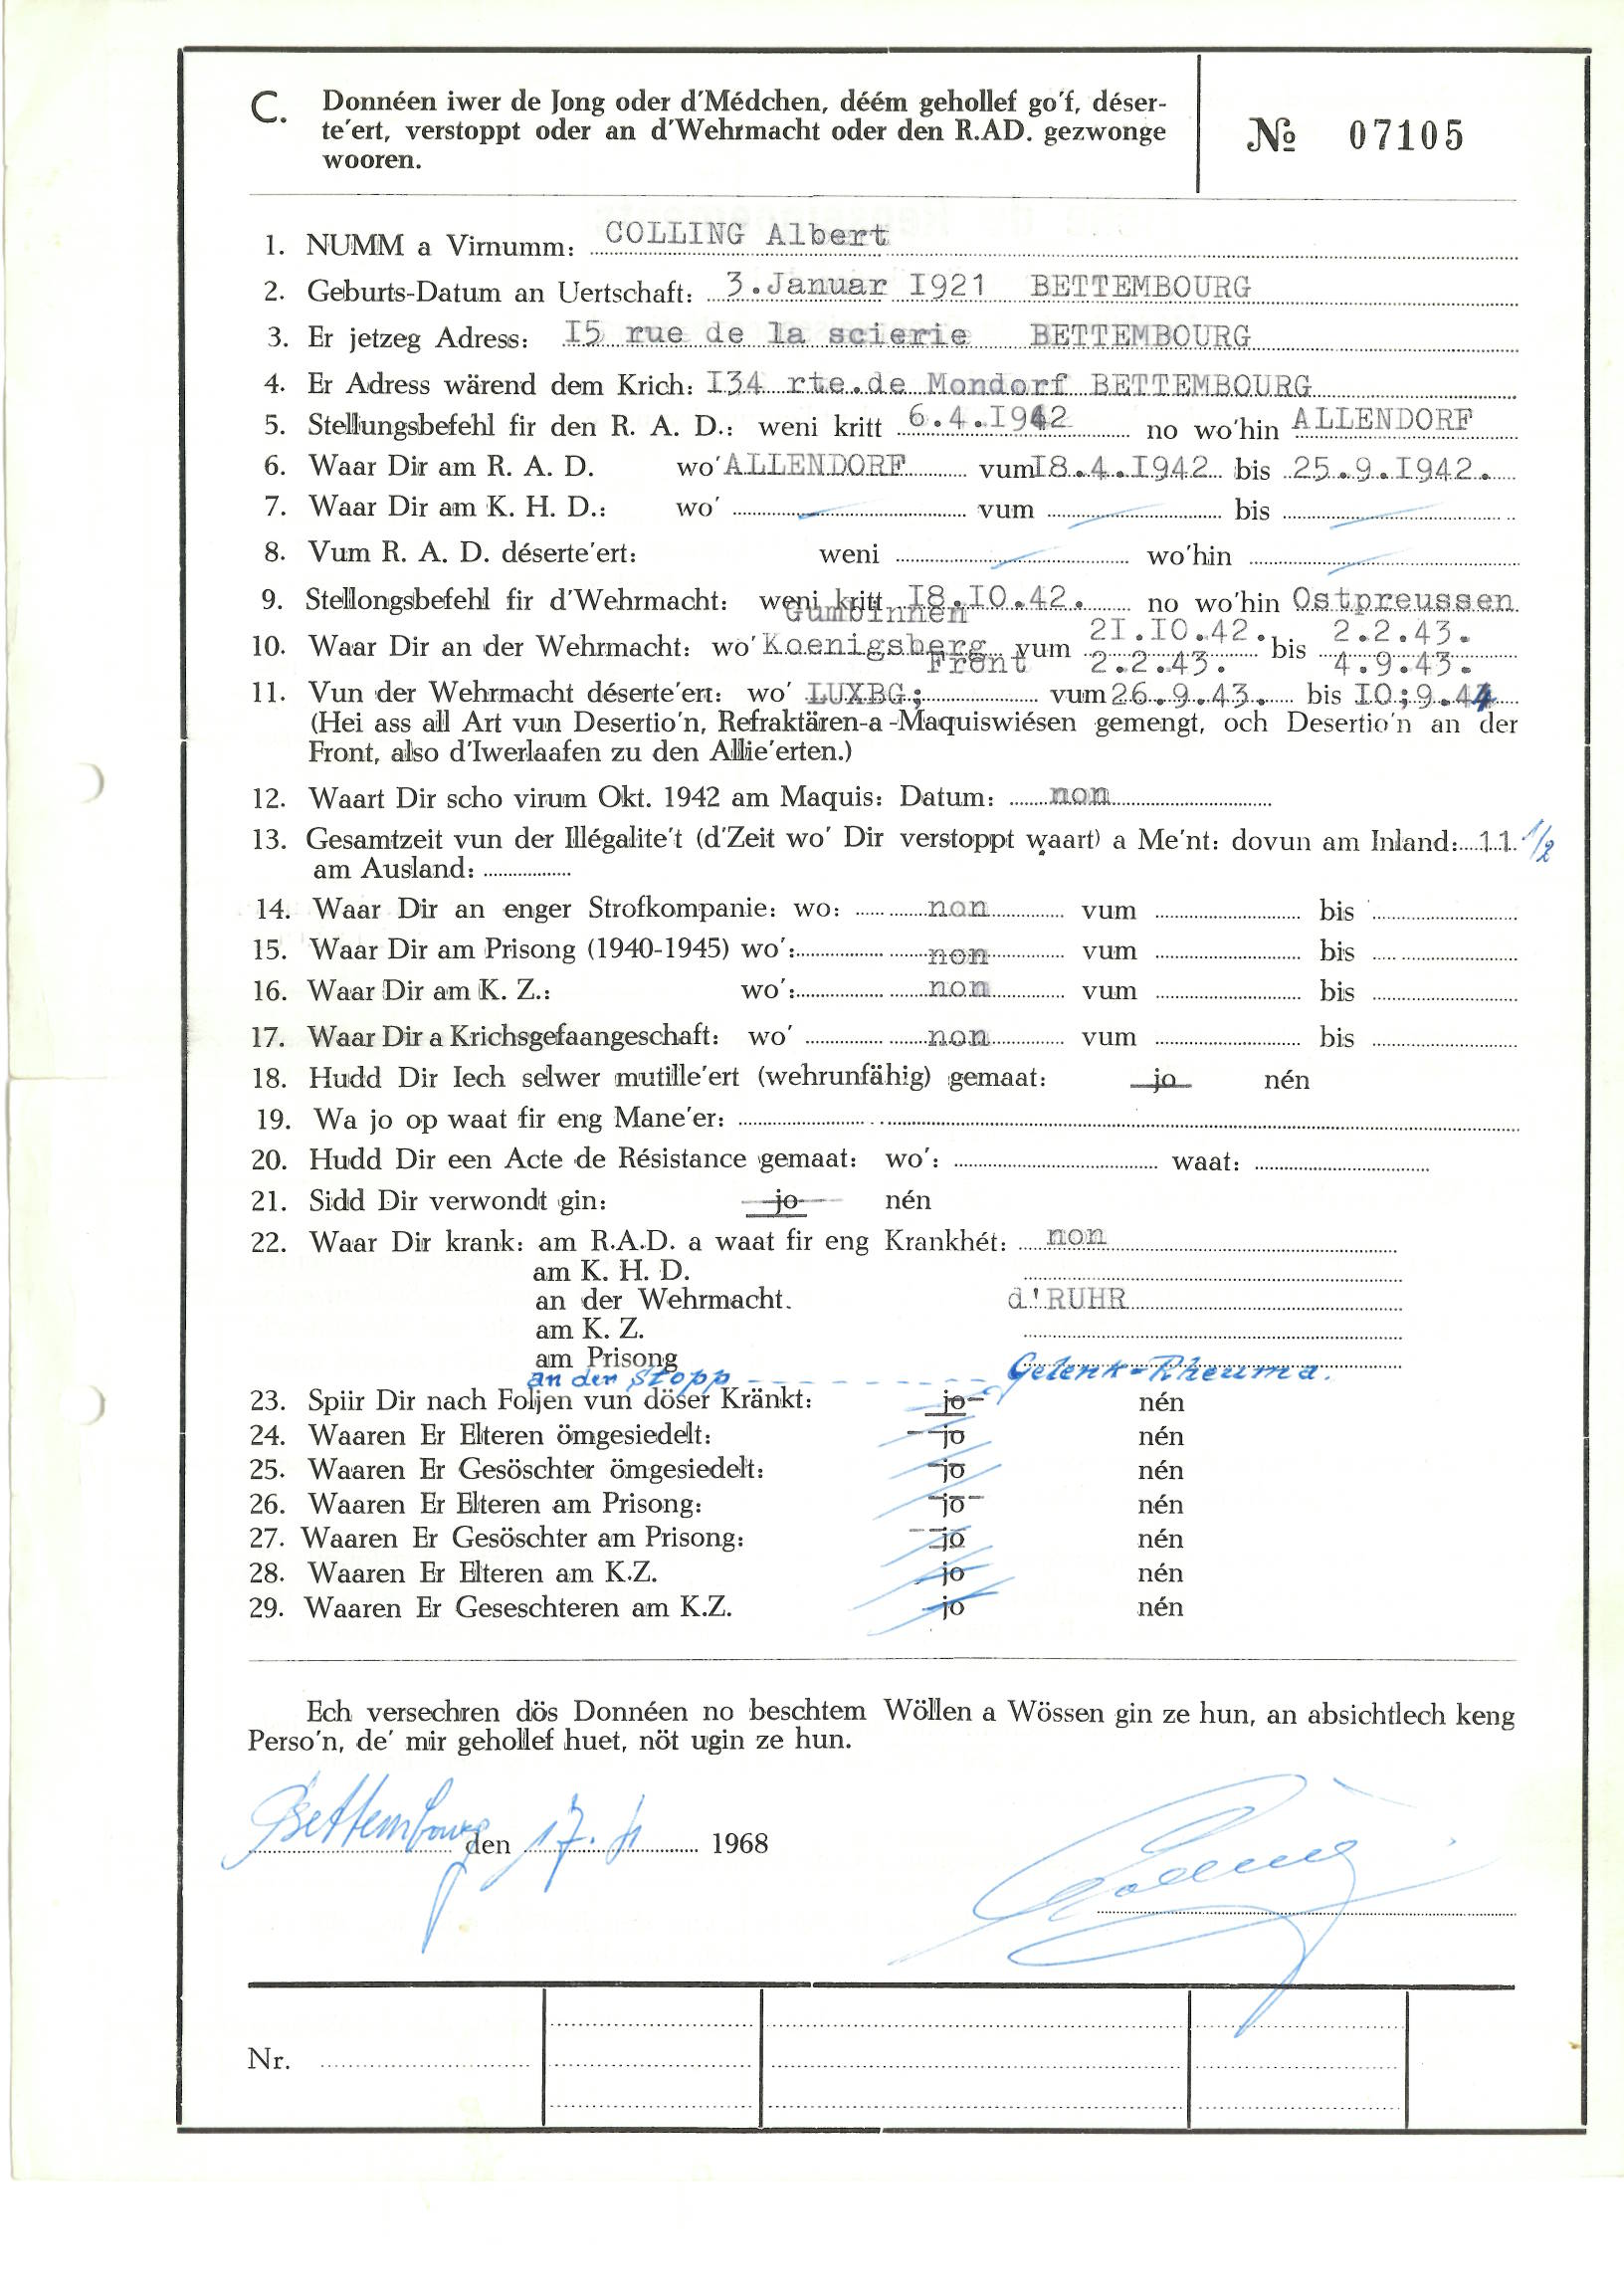 C. Donnéen iwer de Jong oder d'Médchen, déém gehollef go'f, déser-
te'ert, verstoppt oder an d'Wehrmacht oder den R.AD. gezwonge
wooren.
№ 07105
1. NUMM a Virnumm: COLLING Albert
2. Geburts-Datum an Uertschaft: 3.Januar I921 BETTEMBOURG
3. Er jetzeg Adress: I5 rue de la scierie BETTEMBOURG
4. Er Adress wärend dem Krich: I34 rte.de Mondorf BETTEMBOURG
5. Stellungsbefehl fir den R. A. D.: weni kritt 6.4.I942 no wo'hin ALLENDORF
6. Waar Dir am R. A. D. wo' ALLENDORF vum I8.4.I942 bis 25.9.I942.
7. Waar Dir am K. H. D.: wo' vum bis
8. Vum R. A. D. déserte'ert: weni wo'hin
9. Stellongsbefehl fir d'Wehrmacht: weni kritt I8.IO.42. no wo'hin Ostpreussen
Gumbinnen 2I.IO.42. 2.2.43.
10. Waar Dir an der Wehrmacht: wo' Koenigsberg vum bis
Front 2.2.43. 4.9.43.
11. Vun der Wehrmacht déserte'ert: wo' LUXBG; vum 26.9.43. bis IO;9.44
(Hei ass all Art vun Desertio'n, Refraktären-a-Maquiswiésen gemengt, och Desertio'n an der
Front, also d'Iwerlaafen zu den Allie'erten.)
12. Waart Dir scho virum Okt. 1942 am Maquis: Datum: non
13. Gesamtzeit vun der Illégalite't (d'Zeit wo' Dir verstoppt waart) a Me'nt: dovun am Inland: 11 1/2
am Ausland:
14. Waar Dir an enger Strofkompanie: wo: non vum bis
15. Waar Dir am Prisong (1940-1945) wo': non vum bis
16. Waar Dir am K. Z.: wo': non vum bis
17. Waar Dir a Krichsgefaangeschaft: wo' non vum bis
18. Hudd Dir Iech selwer mutille'ert (wehrunfähig) gemaat: jo nén
19. Wa jo op waat fir eng Mane'er:
20. Hudd Dir een Acte de Résistance gemaat: wo': waat:
21. Sidd Dir verwondt gin: jo nén
22. Waar Dir krank: am R.A.D. a waat fir eng Krankhét: non
am K. H. D.
an der Wehrmacht. d'RUHR
am K. Z.
am Prisong
an der Stopp Gelenk-Rheuma.
23. Spiir Dir nach Foljen vun döser Kränkt: jo nén
24. Waaren Er Elteren ömgesiedelt: jo nén
25. Waaren Er Gesöschter ömgesiedelt: jo nén
26. Waaren Er Elteren am Prisong: jo nén
27. Waaren Er Gesöschter am Prisong: jo nén
28. Waaren Er Elteren am K.Z. jo nén
29. Waaren Er Geseschteren am K.Z. jo nén
Ech versechren dös Donnéen no beschtem Wöllen a Wössen gin ze hun, an absichtlech keng
Perso'n, de' mir gehollef huet, nöt ugin ze hun.
Bettembourg den 17. 1968
Colling
Nr.